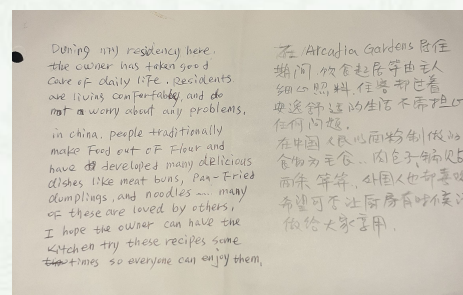 During my residency here.
the owner has taken good
care of daily life. Residents
are living comfortably, and do
not a worry about any problems,
in china. people traditionally
make Food out of Flour and
have developed many delicious
dishes like meat buns, Pan-Fried
dumplings, and noodles .... many
of these are loved by others,
I hope the owner can have the
kitchen try these recipes some
times so everyone can enjoy them,
在 Arcadia Gardens 居住
期间, 饮食起居等由主人
细心照料, 住客都过着
安逸舒适的生活不需担心
任何问题.
在中国人民以面粉制做的
食物为主食.. 肉包子, 锅贴
面条 等等, 外国人也都喜
希望可否让厨房有时候
做给大家享用.